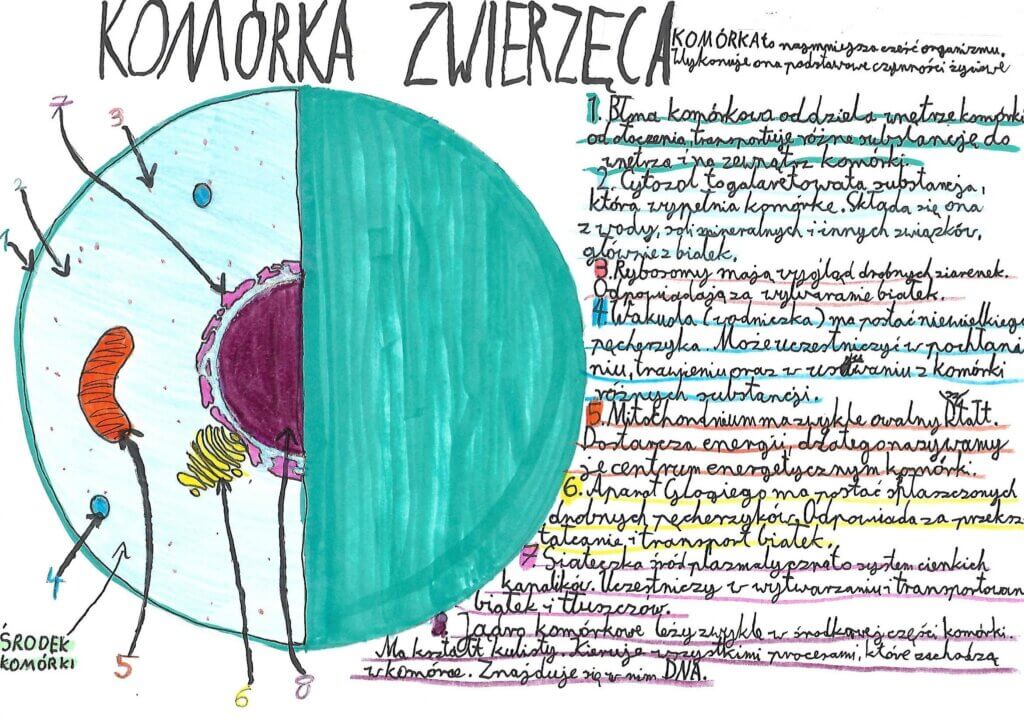 KOMÓRKA ZWIERZĘCA
KOMÓRKA to najmniejsza część organizmu.
Wykonuje ona podstawowe czynności życiowe
1. Błona komórkowa oddziela wnętrze komórki
od otoczenia, transportuje różne substancję do
wnętrza i na zewnątrz komórki.
2. Cytozol to galaretowata substancja,
która wypełnia komórkę. Składa się ona
z wody, soli mineralnych i innych związków,
głównie z białek.
3. Rybosomy mają wygląd drobnych ziarenek.
Odpowiadają za wytwaranie białek.
4 Wakuola (wodniczka) ma postać niewielkiego
pęcherzyka. Może uczestniczyć w pochłania
niu, trawieniu oraz w usuwaniu z komórki
różnych substancji.
5. Mitochondrium ma zwykle owalny kształt.
Dostarcza energii, dlatego nazywamy
je centrum energetycznym komórki.
6. Aparat Glogiego ma postać spłaszczonych
drobnych pęcherzyków. Odpowiada za przeksz
tałcanie i transport białek.
7. Siateczka śródplazmatyczna to system cienkich
kanalików. Uczestniczy w wytwarzaniu i transportowan
białek i tłuszczów.
8 Jądro komórkowe leży zwykle w środkowej części komórki.
Ma kształt kulisty. Kieruje wszystkimi procesami, które zachodzą
w komórce. Znajduje się w nim DNA.
7
3
2
1
4
ŚRODEK
KOMÓRKI
5
6
8